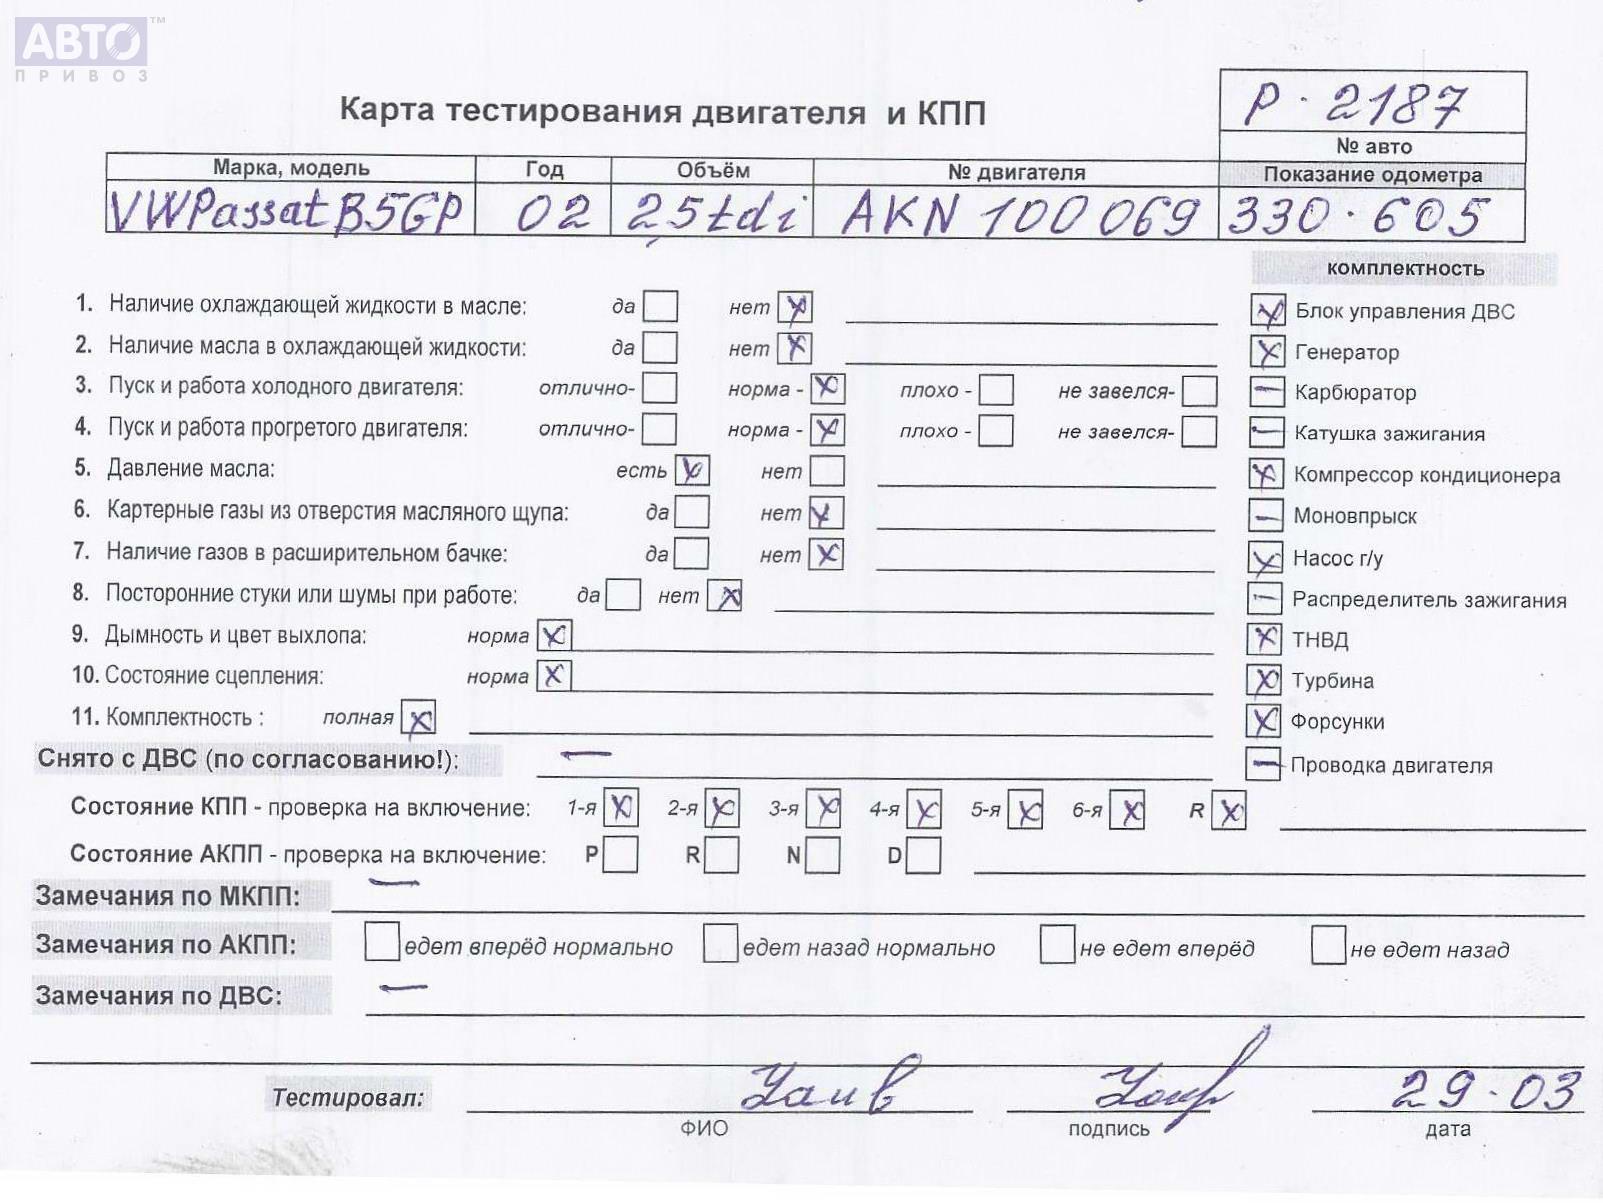 АВТО™
ПРИВОЗ
Р·2187
Карта тестирования двигателя и КПП
№ авто
Марка, модель Год Объём № двигателя Показание одометра
VWPassat B5GP 02 2,5tdi AKN 100069 330·605
комплектность
1. Наличие охлаждающей жидкости в масле: да нет Блок управления ДВС
2. Наличие масла в охлаждающей жидкости: да нет Генератор
3. Пуск и работа холодного двигателя: отлично- норма - плохо - не завелся- Карбюратор
4. Пуск и работа прогретого двигателя: отлично- норма - плохо - не завелся- Катушка зажигания
5. Давление масла: есть нет Компрессор кондиционера
6. Картерные газы из отверстия масляного щупа: да нет Моновпрыск
7. Наличие газов в расширительном бачке: да нет Насос г/у
8. Посторонние стуки или шумы при работе: да нет Распределитель зажигания
9. Дымность и цвет выхлопа: норма ТНВД
10. Состояние сцепления: норма Турбина
11. Комплектность : полная Форсунки
Снято с ДВС (по согласованию!): — Проводка двигателя
Состояние КПП - проверка на включение: 1-я 2-я 3-я 4-я 5-я 6-я R
Состояние АКПП - проверка на включение: P R N D
Замечания по МКПП: —
Замечания по АКПП: едет вперёд нормально едет назад нормально не едет вперёд не едет назад
Замечания по ДВС: —
Тестировал: 29·03
ФИО подпись дата